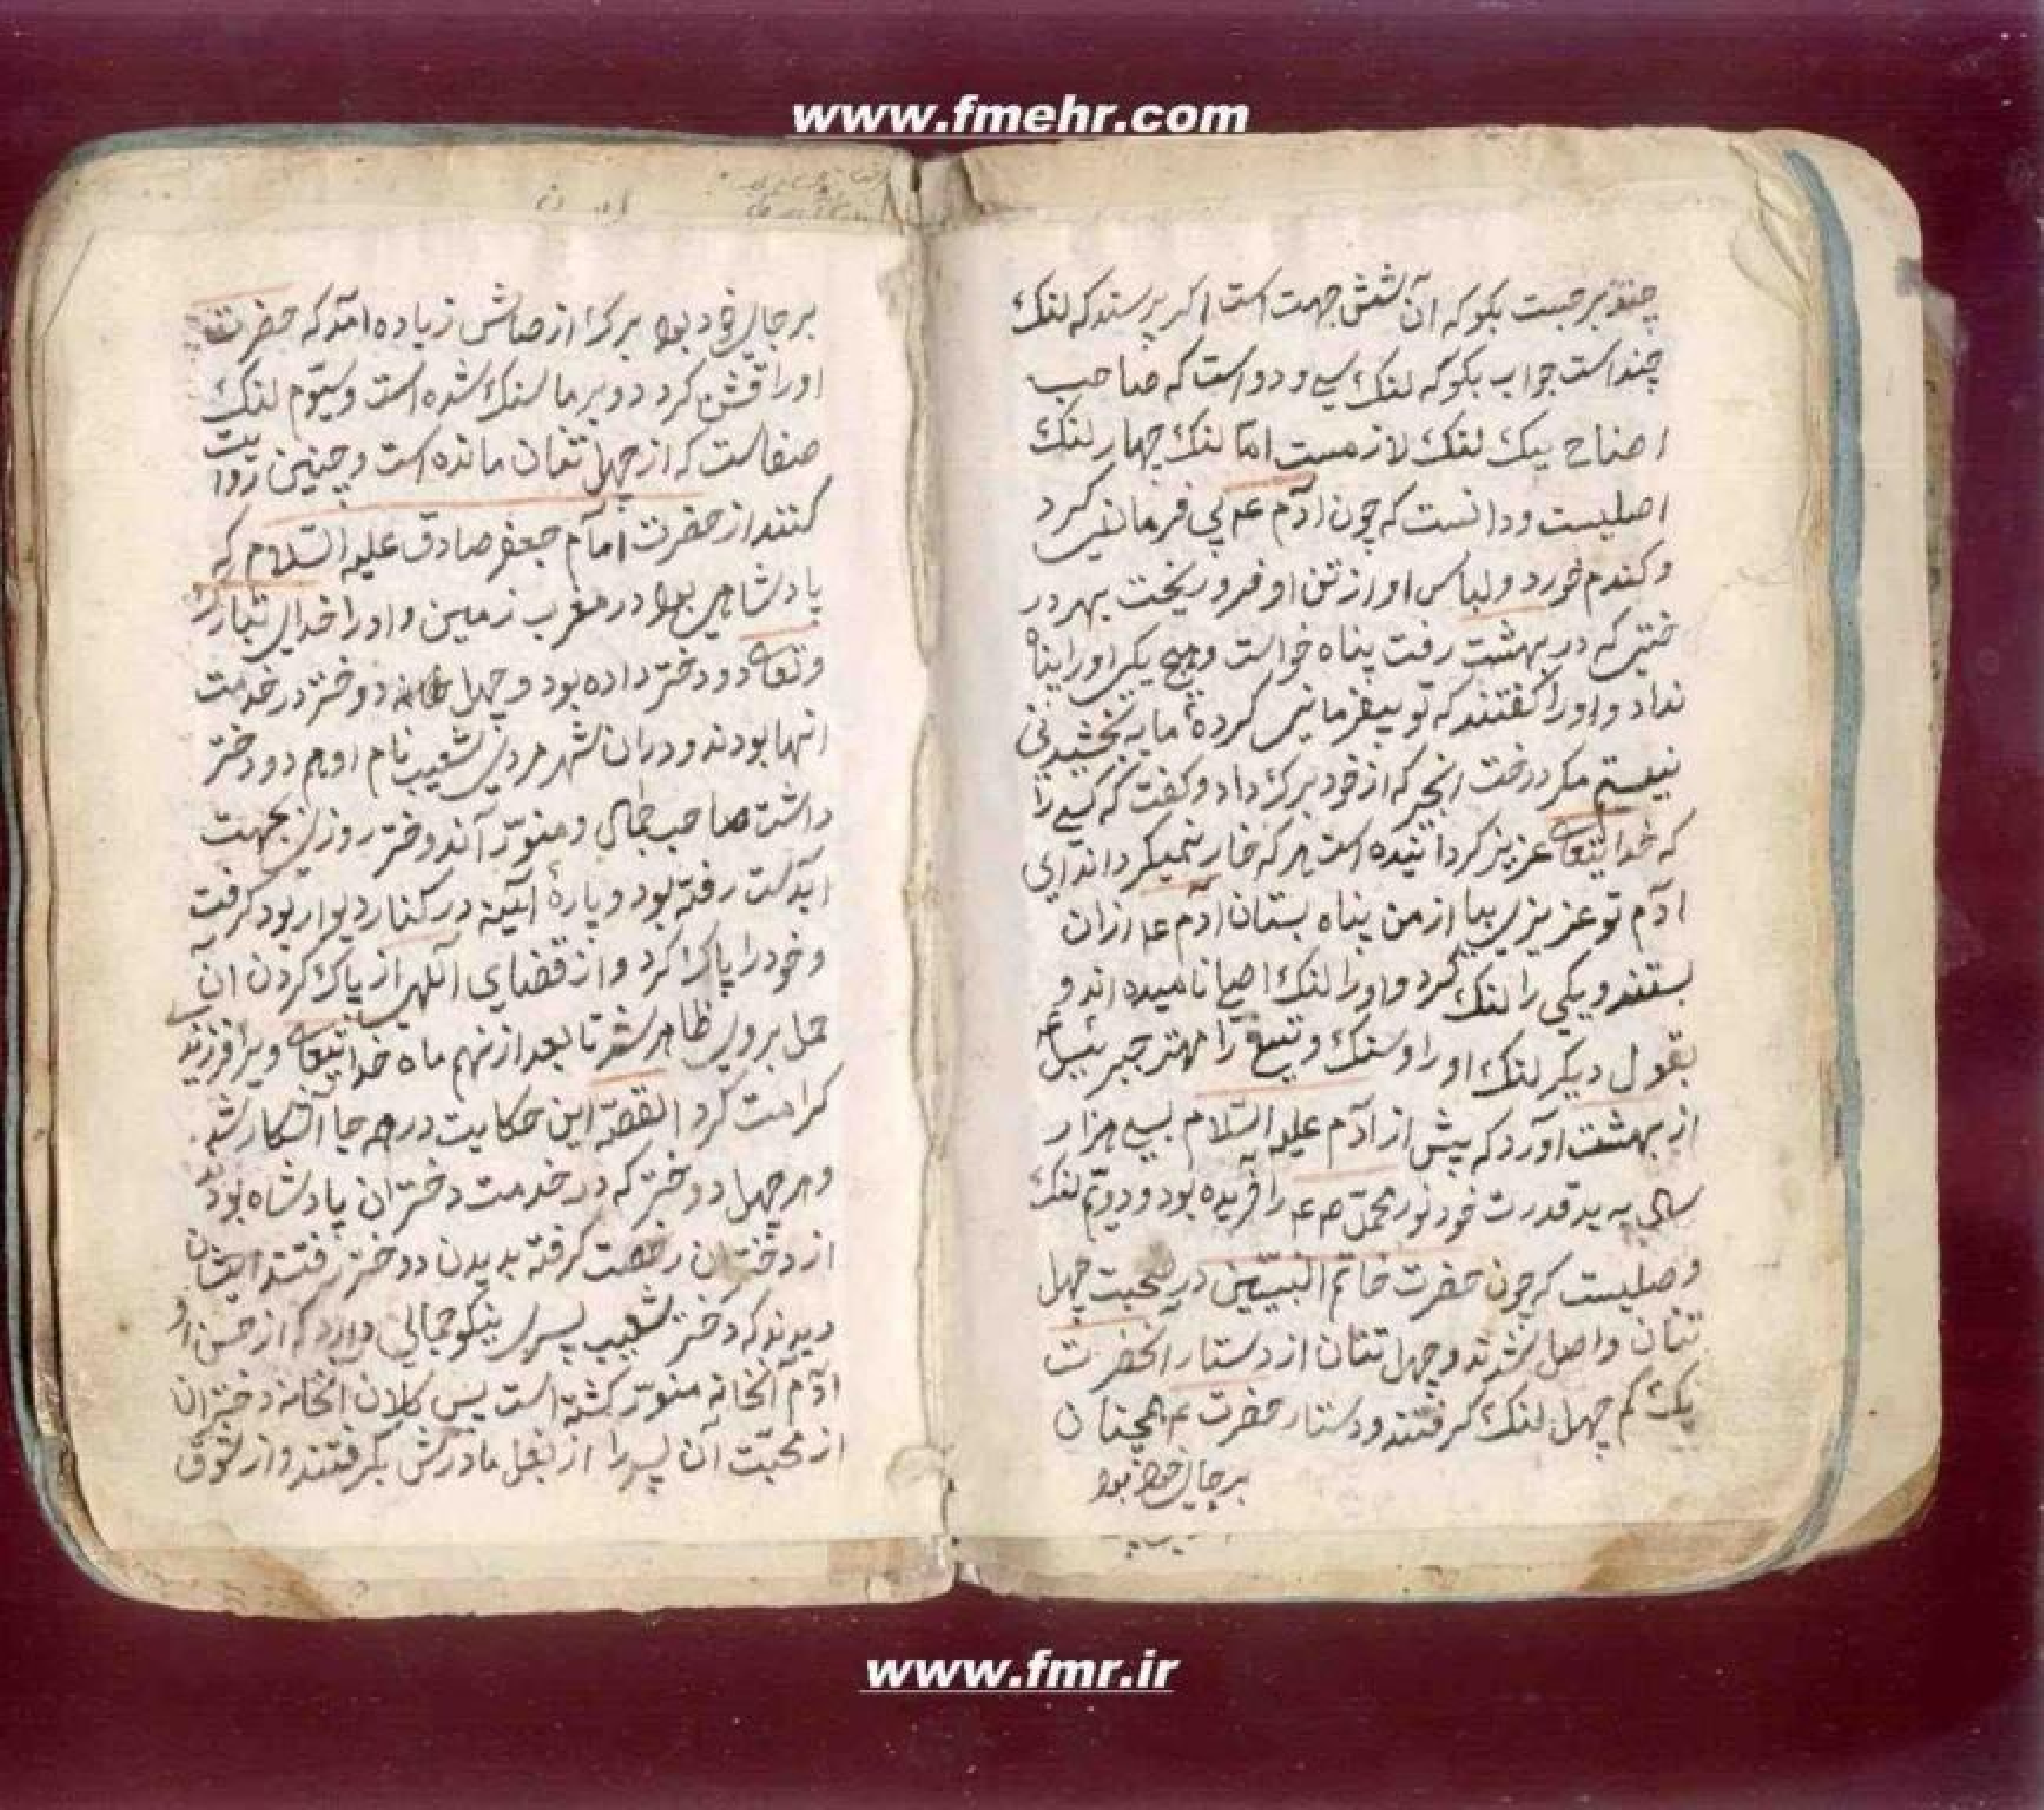 www.fmehr.com
بر جبست بکو که آن شش جهت است اکر پرسند که لنک
چند است جواب بکو که لنک سی و دو است که صاحب
یک لنک لازمست اما لنک چهار لنک
اصلیست و دانست که چون آدم ع بی فرمانی کرد
و کندم خورد و لباس او از تن او فرو ریخت بهر در
ختی که در بهشت رفت پناه خواست و هیچ یکی او را پناه
نداد و او را کفتند که تو بیفرمانی کردهٔ ما به بخشیدنی
نیستیم مکر درخت انجیر که از خود برک داد و کفت که کسی را
که خدایتعالی عزیز کردانیده است هر که خار نمیکرداند ای
آدم تو عزیزی بیا از من پناه بستان آدم ع ازان
بستند و یکی را لنک کرد و او را لنک اصلی نامیده اند و
بقول دیکر لنک او را و سنک و تیغ را مهتر جبرئیل ع
از بهشت آورد که پیش از آدم علیه السلام بسی هزار
سال به ید قدرت خود نور محمد را آفریده بود و دویم لنک
وصلیست که چون حضرت خاتم النبیین در صحبت چهل
تنان واصل شدند و چهل تنان از دستار انحضرت
یک کم چهل لنک کرفتند و دستار حضرت ع همچنان
بر جای خود بود
بر جای خود بود برک از صاش زیاده آمد که حضرت
او را قسم کرد دو بر ما سنک شده است و سیوم لنک
صفاست که از چهل تنان مانده است و چنین روایت
کنند از حضرت امام جعفر صادق علیه السلام که
پادشاهی بود در مغرب زمین و او را خدای تبارک
و تعالی دو دختر داده بود و چهل دو ختر در خدمت
انها بودند و دران شهر مردی شعیب نام او هم دو دختر
داشت صاحب جمال و منور آن دو ختر روزی بجهت
آبدست رفته بود و پارهٔ آیینه در کنار دیوار بود کرفت
و خود را پاک کرد و از قضای آلهی از پاک کردن آن
حمل بروی ظاهر شد تا بعد از نهم ماه خدایتعالی ویرا فرزند
کرامت کرد القصه این حکایت در همه جا آشکار شد
و هر چهل دو ختر که در خدمت دختران پادشاه بودند
از دختران رخصت کرفته بدیدن دو ختر رفتند ایشان
دیدند که دختر شعیب پسری نیکو جمالی دارد که از حسن او
آدم آنخانه منور کشته است پس کلان انخانه دختران
از محبت آن پسر را از بغل مادرش بکرفتند و از شوق
www.fmr.ir